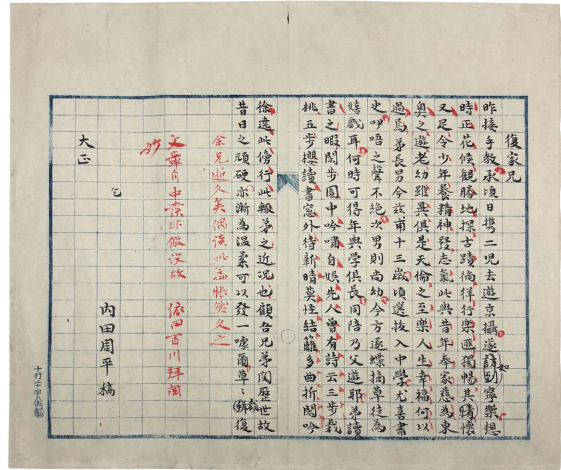 復家兄
昨接手教承頃日攜二児去遊京攝遂到寧樂想
時正花候観勝地探古蹟徜徉行樂匪獨暢其情懐
又足令少年養精神發志氣此與昔年奉家慈為東
奥之遊老幼雖異俱是天倫之至樂人生幸福何以
過焉弟長男今茲甫十三歳頃選抜入中學尤喜書
史咿唔之聲不絶次男則尚幼今方逐蝶摘草徒為
嬉戯耳何時可得年與學俱長同陪乃父遊耶弟讀
書之暇閑歩園中吟嘯自娯先人曽有詩云三歩栽
桃五歩櫻讀書窓外待新晴莫怪結籬多曲折閑吟
徐遶此傍行此輙弟之近况也顧吾兄弟閲歴世故
昔日之頑硬亦漸為温柔可以發一噱爾草々裁復
余兄逝久矣偶讀此為悵然久之
文華月中業非做設故 依田百川拜閲
妙
大正 乞
内田周平稿